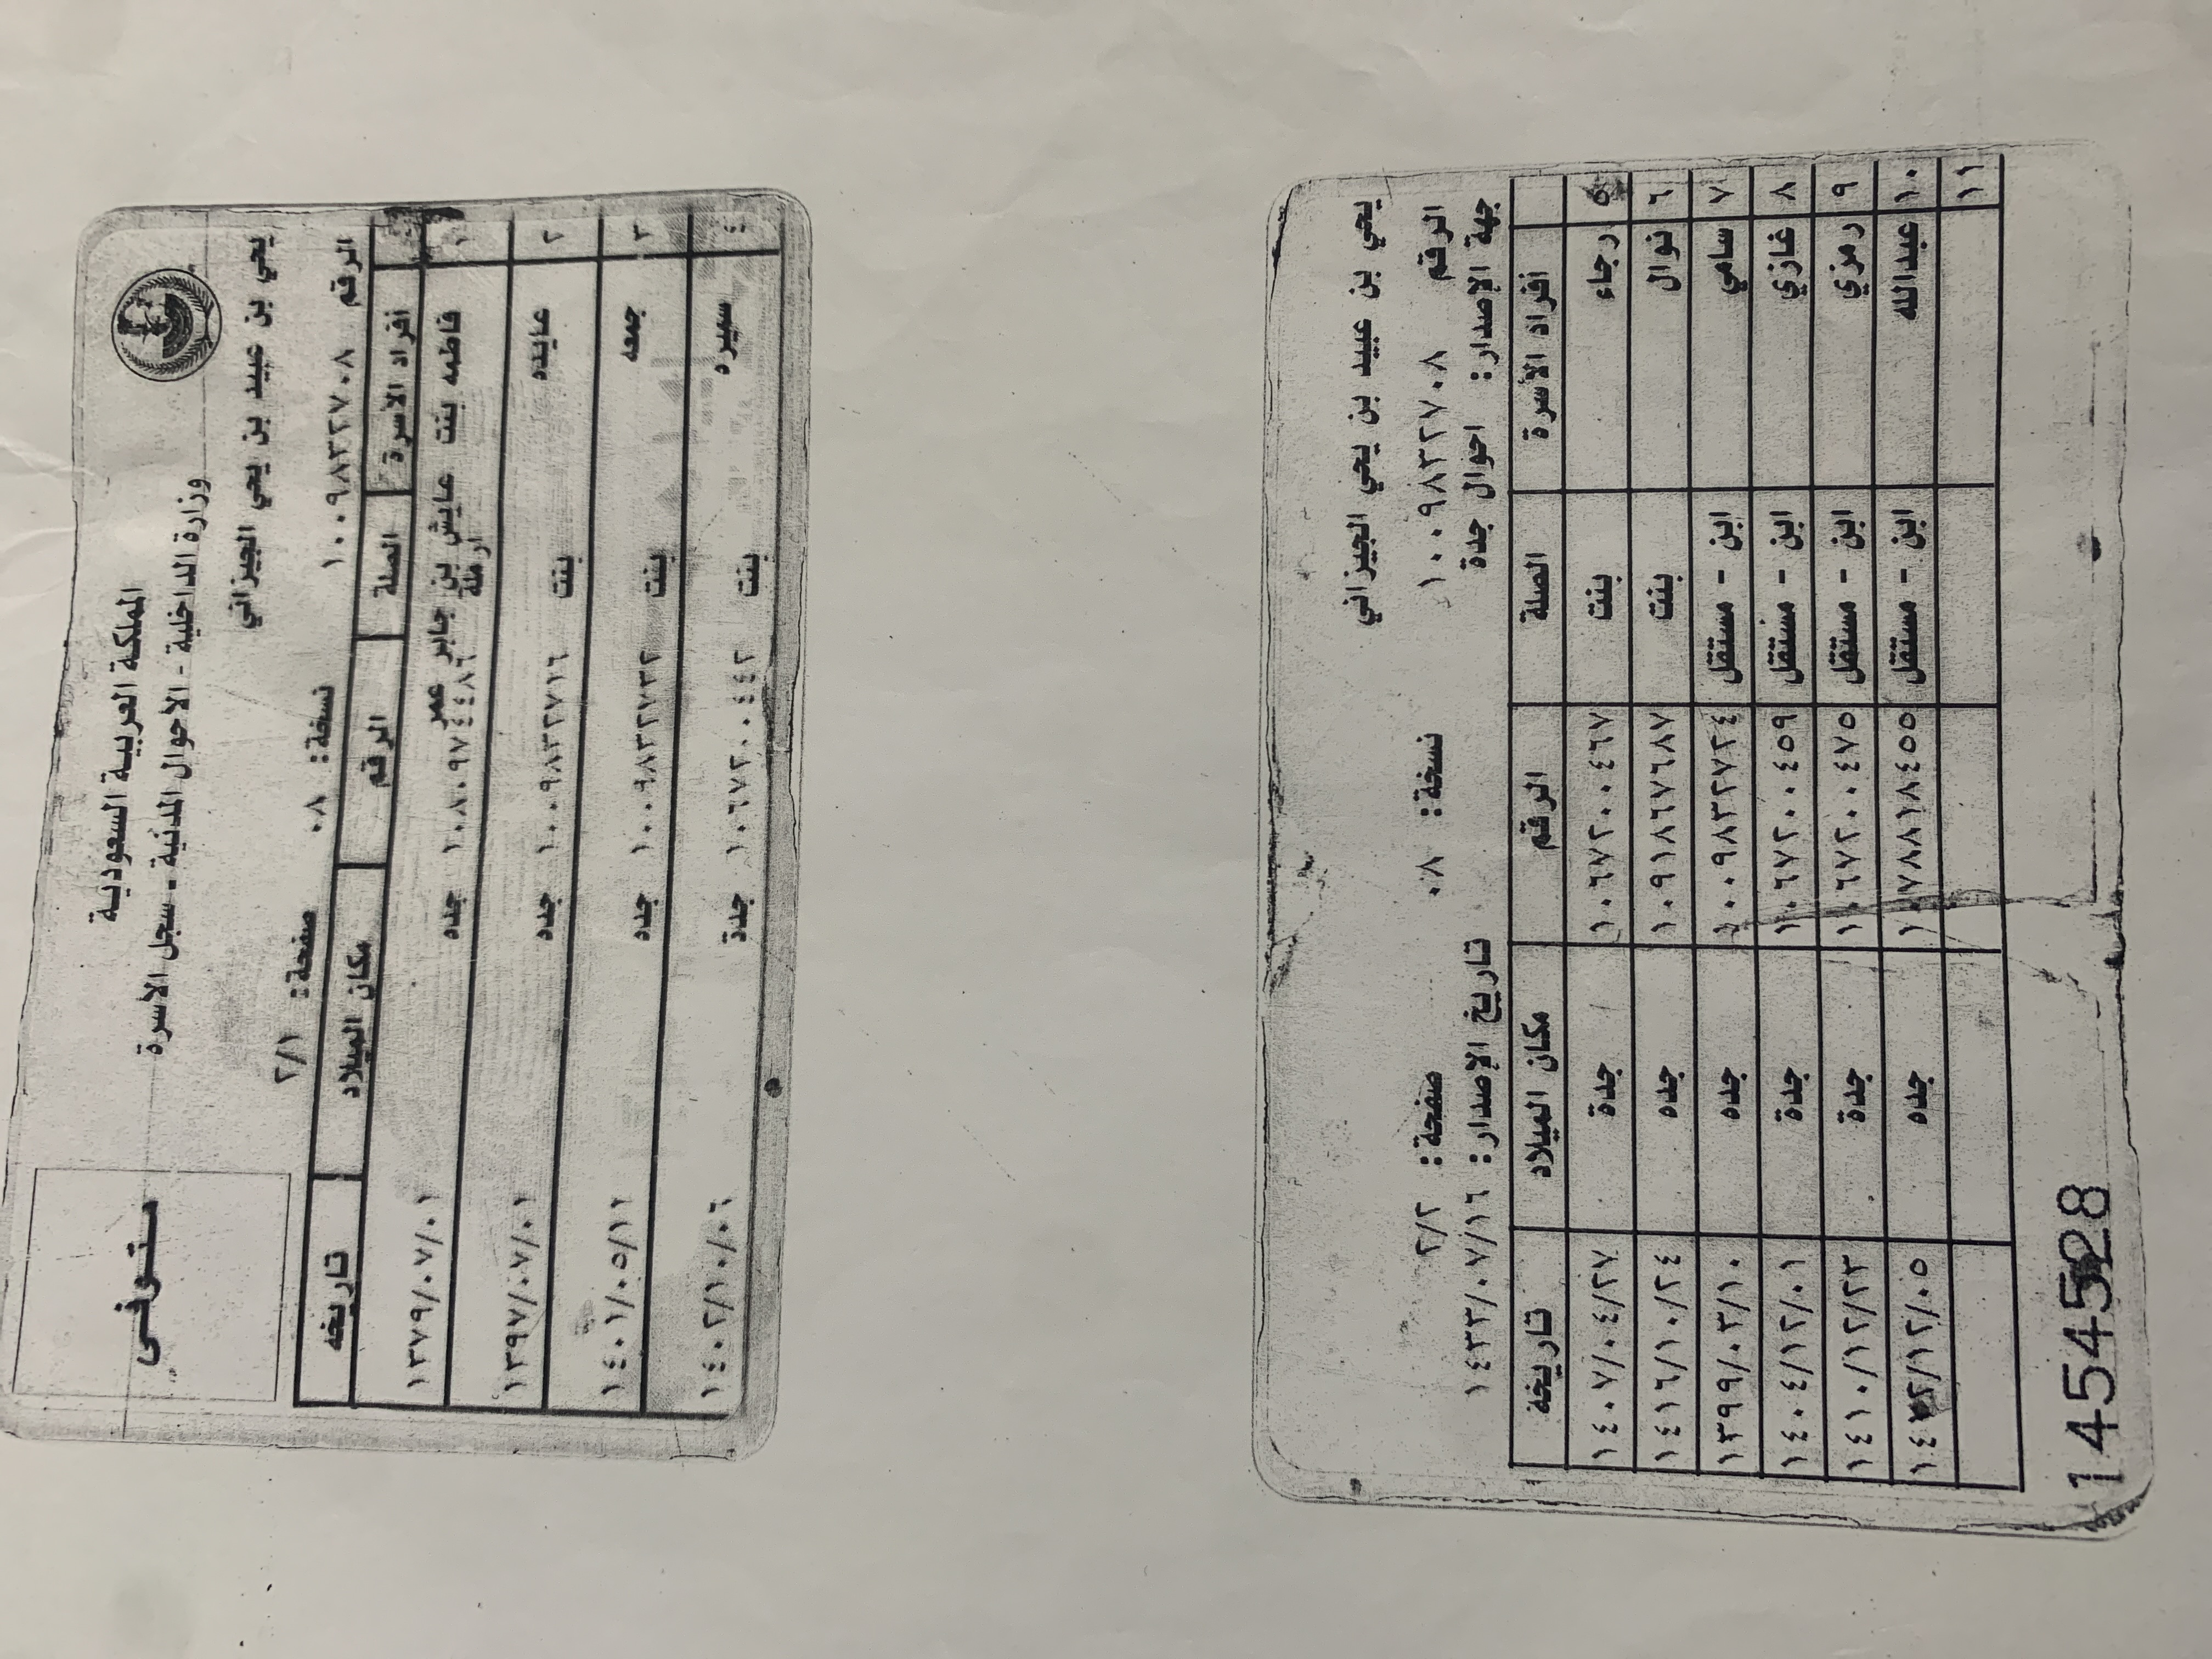 المملكة العربية السعودية
وزارة الداخلية - الأحوال المدنية - سجل الأسرة
متوفى
يحي بن عبيد بن يحي الجيزاني
الرقم ١٠٠٩٨٣٢٧٠٨ نسخة: ٠٨ صفحة: ٢/١
افراد الأسرة الصلة الرقم مكان الميلاد تاريخه
١ فاطمه بنت عايش بن جابر عمر
ارملة ١٠٨٠٩٧٤٤٨٦ جده ١٣٧٩/٠٧/٠١
٢ عايده بنت ١٠٠٩٨٣٢٧١٦ جده ١٣٩٧/٠٧/٠١
٣ جمعه بنت ١٠٠٩٨٣٢٧٣٢ جده ١٤٠١/٠٥/١١
٤ سميره بنت ١٠٦٧٢٠٠٤٤٢ جدة ١٤٠٢/١٠/٠٦
يحي بن عبيد بن يحي الجيزاني
الرقم ١٠٠٩٨٣٢٧٠٨ نسخة: ٠٨ صفحة: ٢/٢
جهة الإصدار: احوال جدة تاريخ الإصدار: ١٤٣٣/٠٧/١٦
افراد الأسرة الصلة الرقم مكان الميلاد تاريخة
٥ رجاء بنت ١٠٦٧٢٠٠٤٦٧ جدة ١٤٠٧/٠٤/٢٧
٦ نوال بنت ١٠٩١٨٦٧٦٨٧ جده ١٤١٦/١٠/٢٤
٧ سامي ابن - مستقل ١٠٠٩٨٣٢٧٢٤ جده ١٣٩٩/٠٣/١٠
٨ غازي ابن - مستقل ١٠٦٧٢٠٠٤٥٩ جدة ١٤٠٤/١٢/٠١
٩ رمزي ابن - مستقل ١٠٦٧٢٠٠٤٧٥ جدة ١٤١٠/١٢/٢٣
١٠ عبدالله ابن - مستقل ١٠٧٨٨١٨٤٥٥ جده
١١
14545528